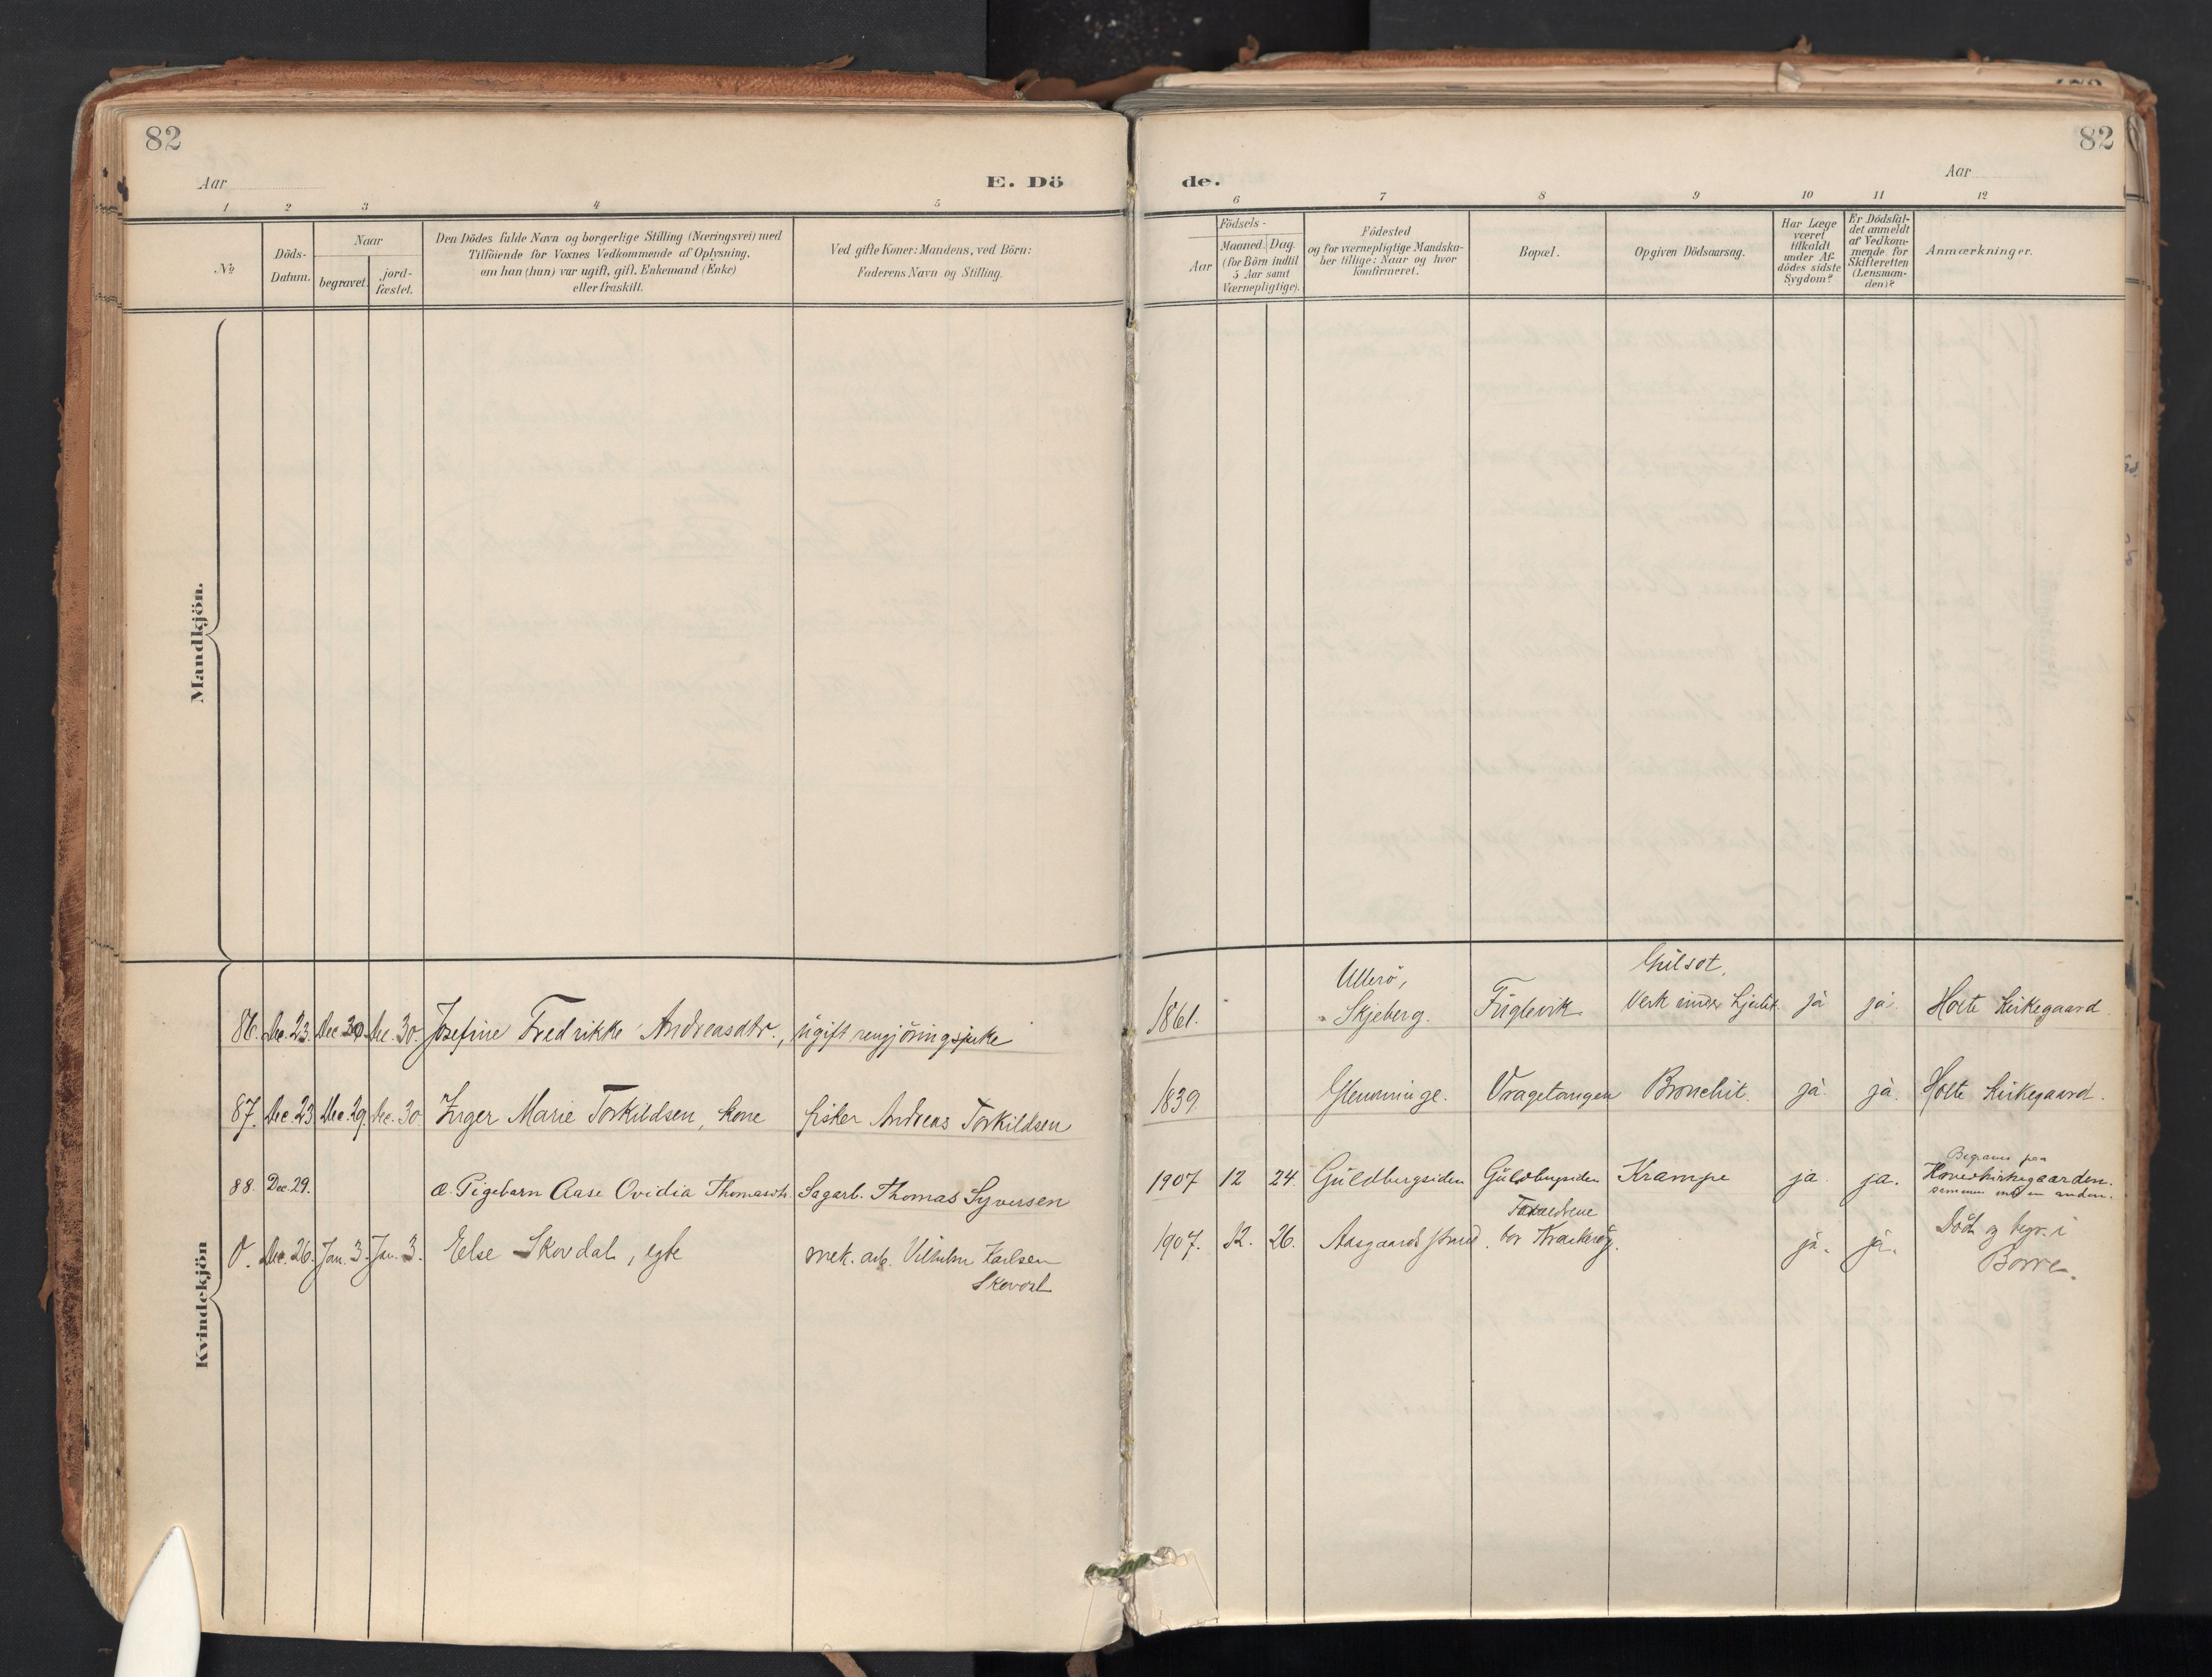 82
Aar
E. Dö
1 2 3 4 5
No
Döds-
Datum.
Naar
begravet.
jord-
fæstet.
Den Dödes fulde Navn og borgerlige Stilling (Næringsvei) med
Tilföiende for Voxnes Vedkommende af Oplysning,
om han (hun) var ugift, gift, Enkemand (Enke)
eller fraskilt.
Ved gifte Koner: Mandens, ved Börn:
Faderens Navn og Stilling.
Mandkjön.
Kvindekjön
86. Dec. 23. Dec 30. Dec. 30. Josefine Fredrikke Andreasdtr., ugift rengjöringspike
87. Dec. 23. Dec. 29. Dec. 30 Inger Marie Torkildsen, kone fisker Andreas Torkildsen
88. Dec. 29. æ. Pigebarn Aase Ovidia Thomasdtr. Sagarb. Thomas Syversen
0. Dec. 26. Jan. 3. Jan. 3. Else Skovdal, egte mek. arb. Vilhelm Karlsen
Skovdal
82
de.
Aar
6 7 8 9 10 11 12
Aar
Födsels-
Maaned. Dag.
(for Börn indtil
5 Aar samt
Værnepligtige).
Födested
og for værnepligtige Mandska-
ber tillige: Naar og hvor
konfirmeret.
Bopæl.
Opgiven Dödsaarsag.
Har Læge
været
tilkaldt
under Af-
dödes sidste
Sygdom?
Er Dödsfal-
det anmeldt
af Vedkom-
mende for
Skifteretten
(Lensman-
den)?
Anmærkninger.
Ullerö, Gulsot,
1861. Skjeberg. Fuglevik Verk under hjertet. ja ja. Holte Kirkegaard.
1839. Glemminge. Vragetangen Bronchit. ja. ja. Holte Kirkegaard.
Begraves paa
1907 12 24. Guldbergsiden Guldbergsiden Krampe ja ja. Hovedkirkegaarden.
sammen med en anden.
Forældrene
1907. 12. 26. Aasgaardstrand. bor Kraakeröy. ja. ja. Död og begr. i
Borre.